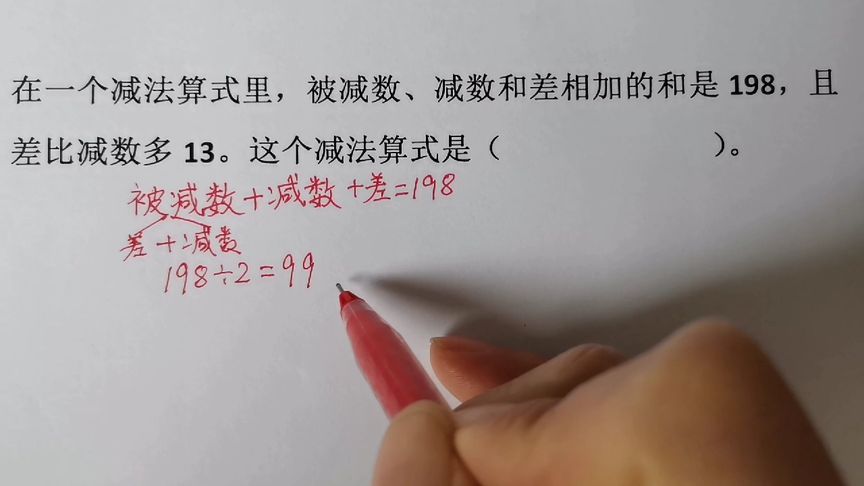 在一个减法算式里，被减数、减数和差相加的和是 198，且
差比减数多 13。这个减法算式是（ ）。
被减数+减数+差=198
差+减数
198÷2=99